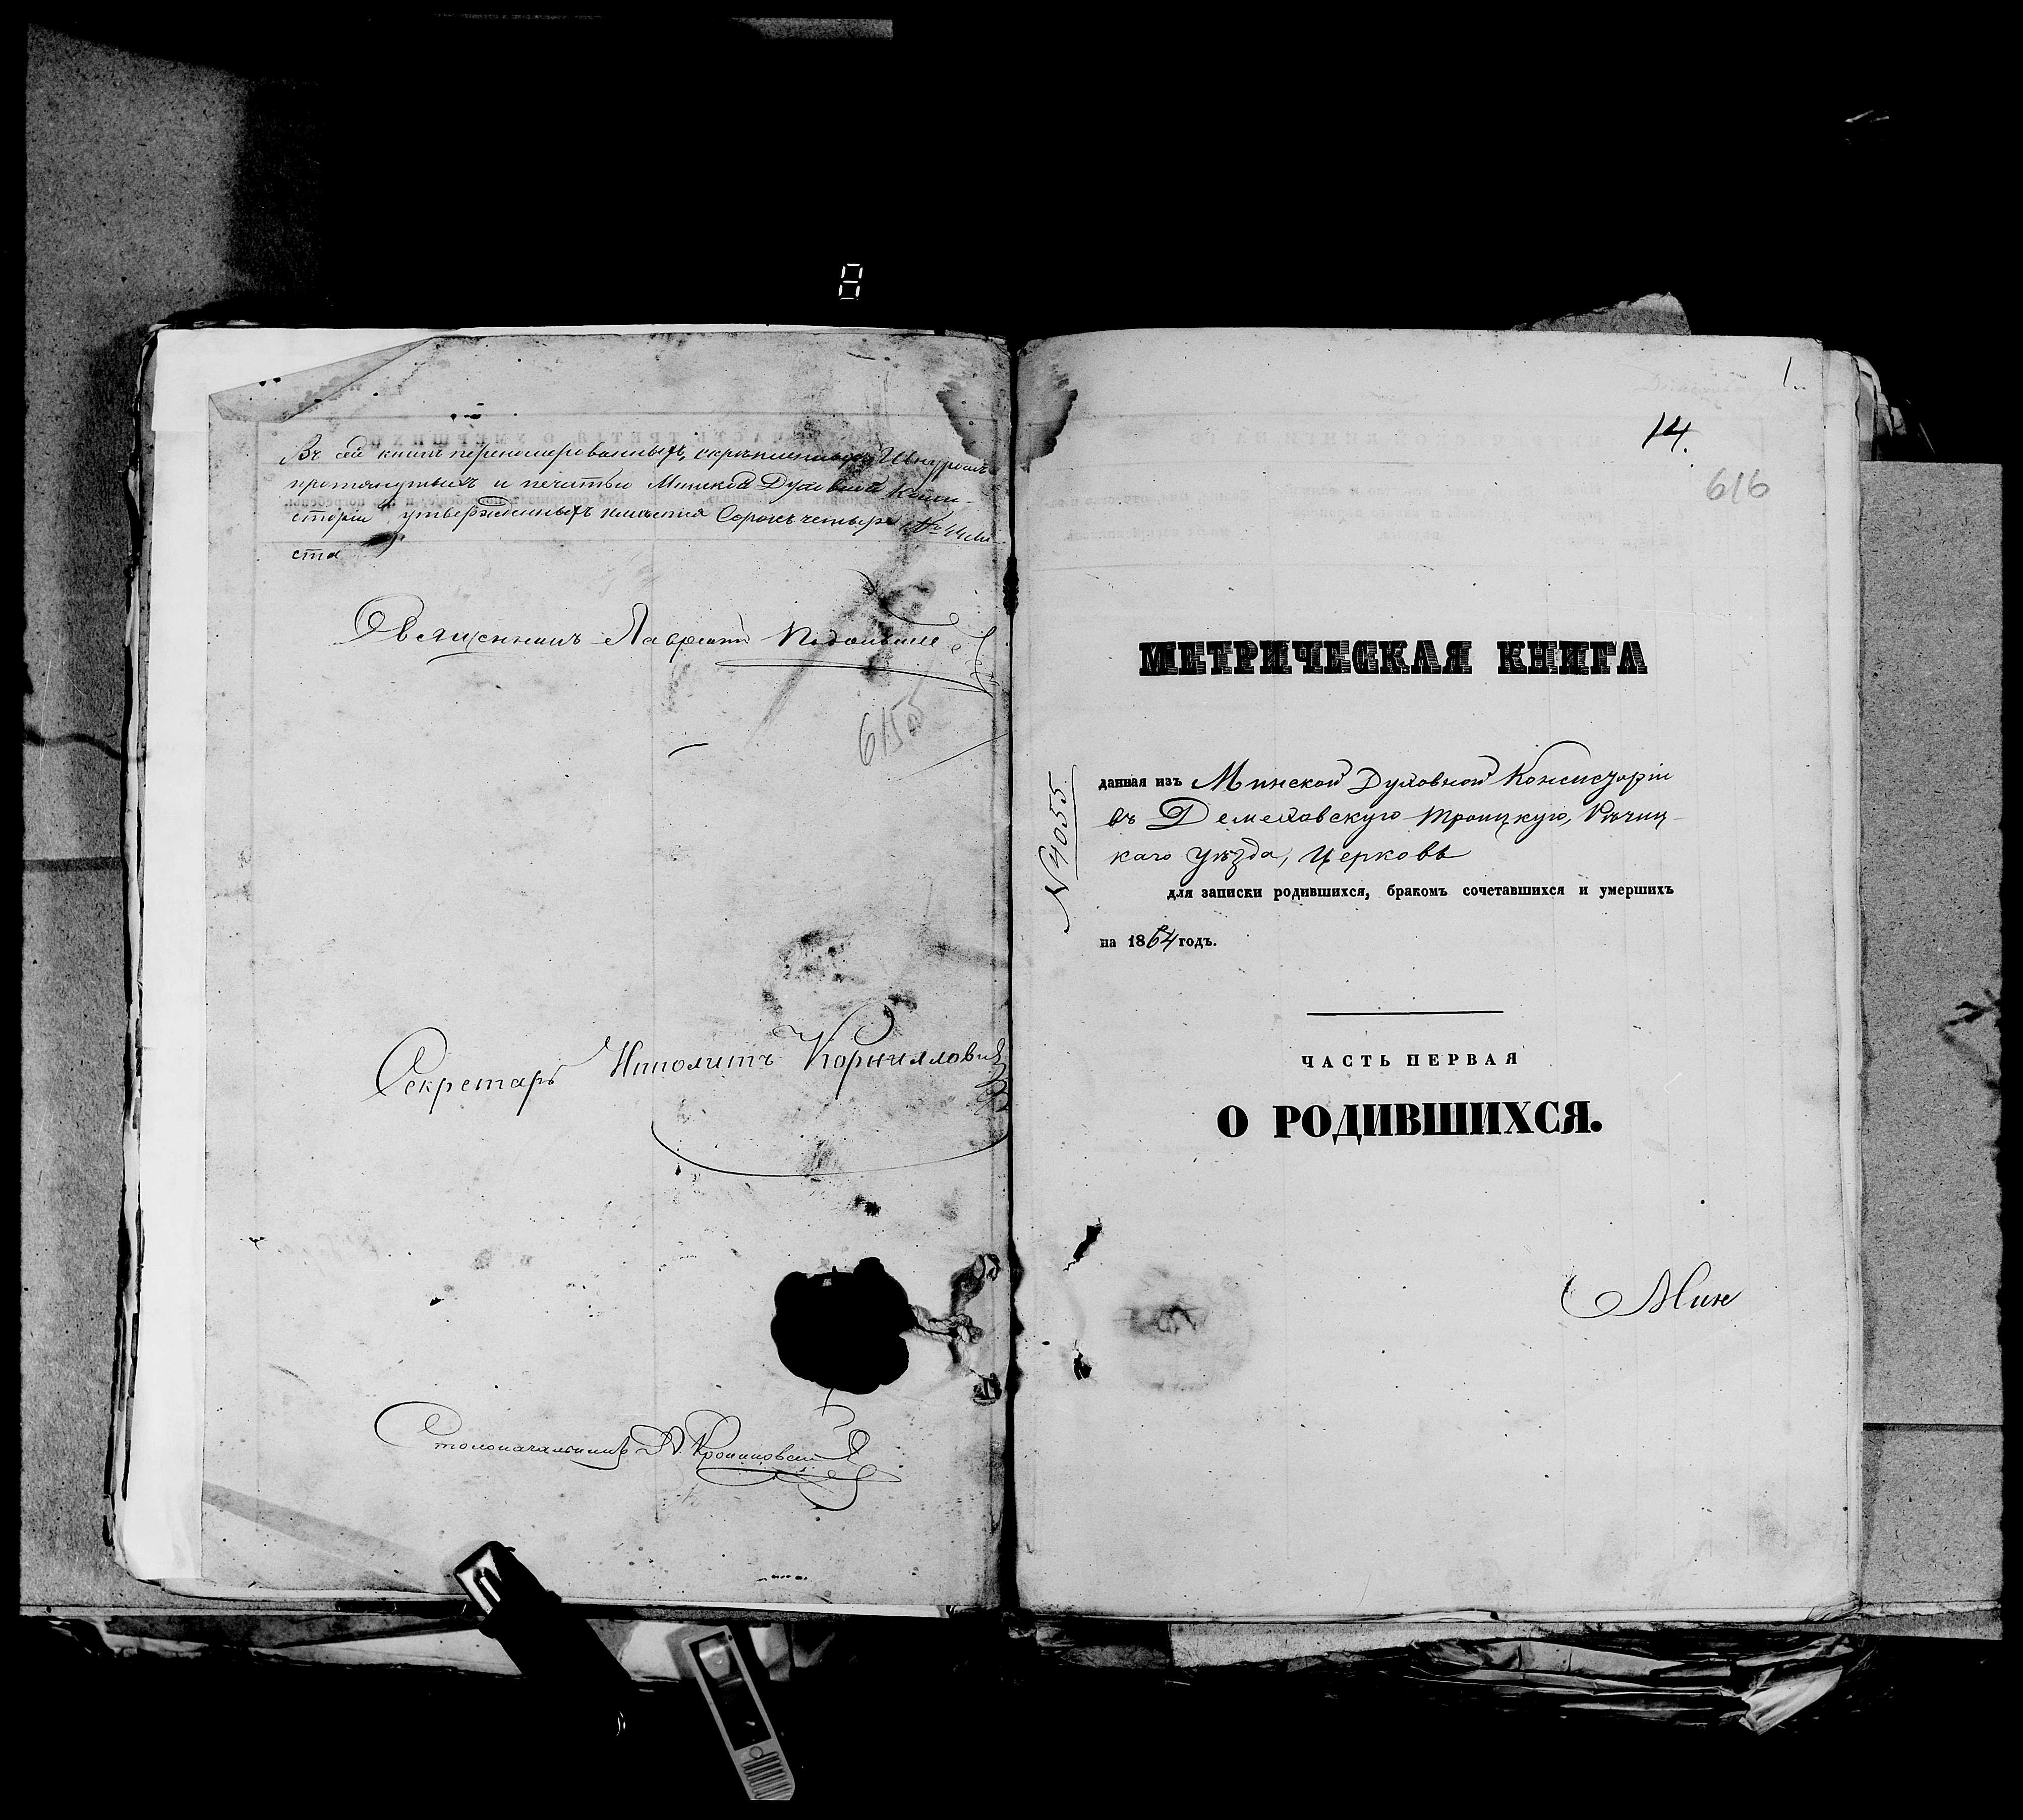 Въ сей книгѣ перенумерованныхъ, скрѣпленныхъ, Шнуромъ
протянутыхъ и печатью Минской Духовной Конси-
сторіи утвержденныхъ имѣется Сорокъ четыре № 44 ли-
ста
Священникъ Лаврентій
615об
Секретарь Ипполитъ Корниллович
Столоначальникъ
8
1
14.
616
МЕТРИЧЕСКАЯ КНИГА
№ 4055
данная изъ Минской Духовной Консисторіи
въ Демеховскую Троицкую, Рѣчиц-
каго Уѣзда, Церковь
для записки родившихся, бракомъ сочетавшихся и умершихъ
на 1864 годъ.
ЧАСТЬ ПЕРВАЯ
О РОДИВШИХСЯ.
Мин